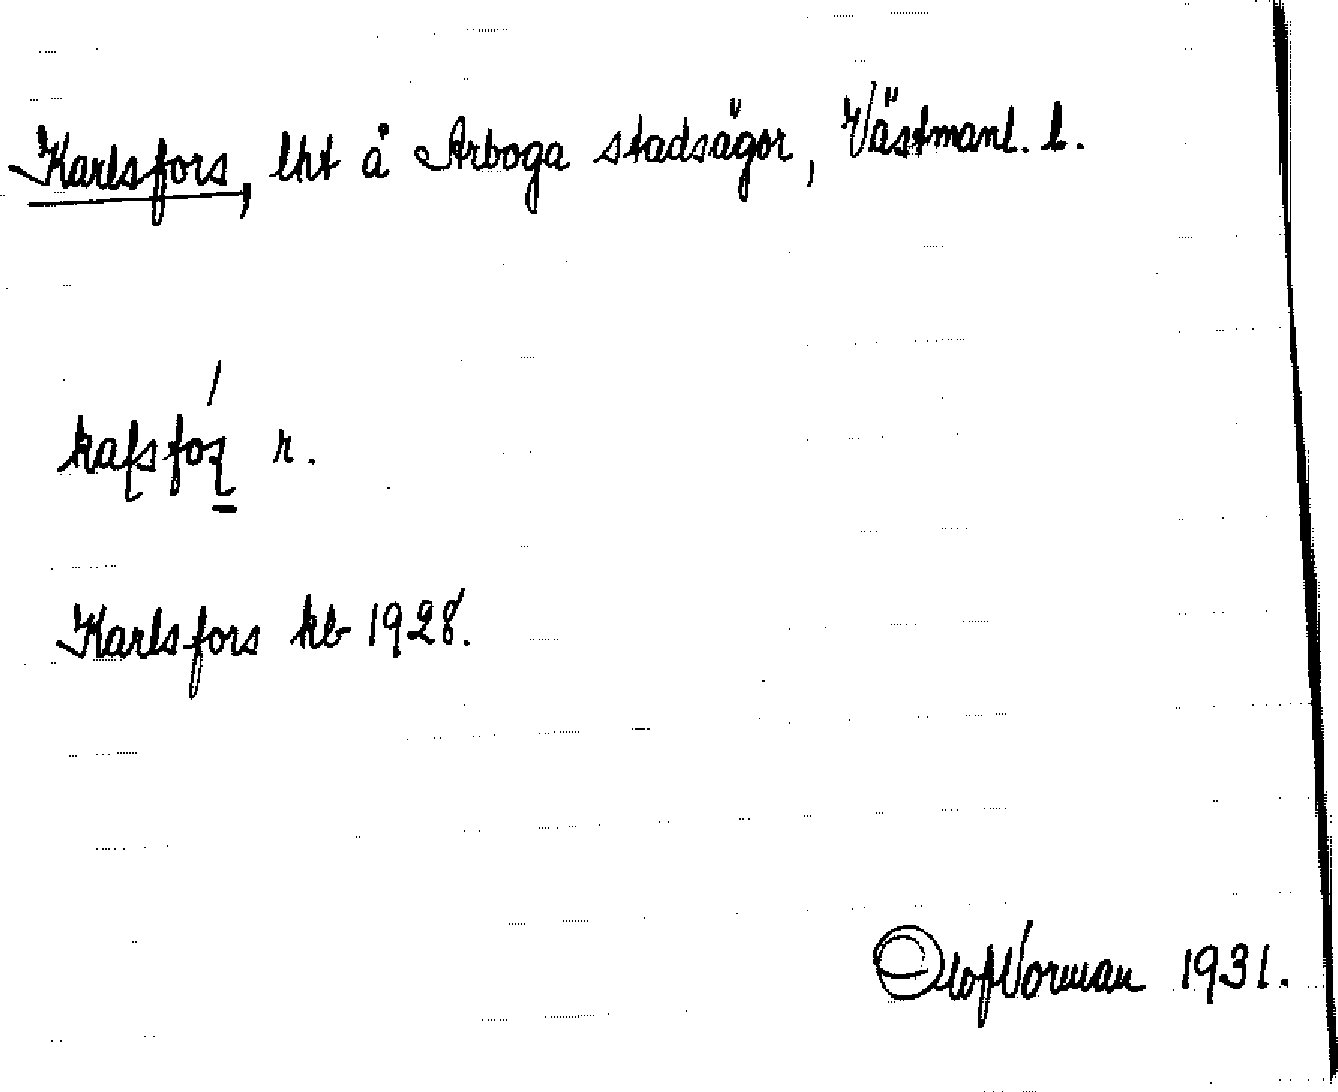 Karlsfors, lht å Arboga stadsägor, Västmanl. l.
r.
Karlsfors kb 1928.
Olof Norman 1931.